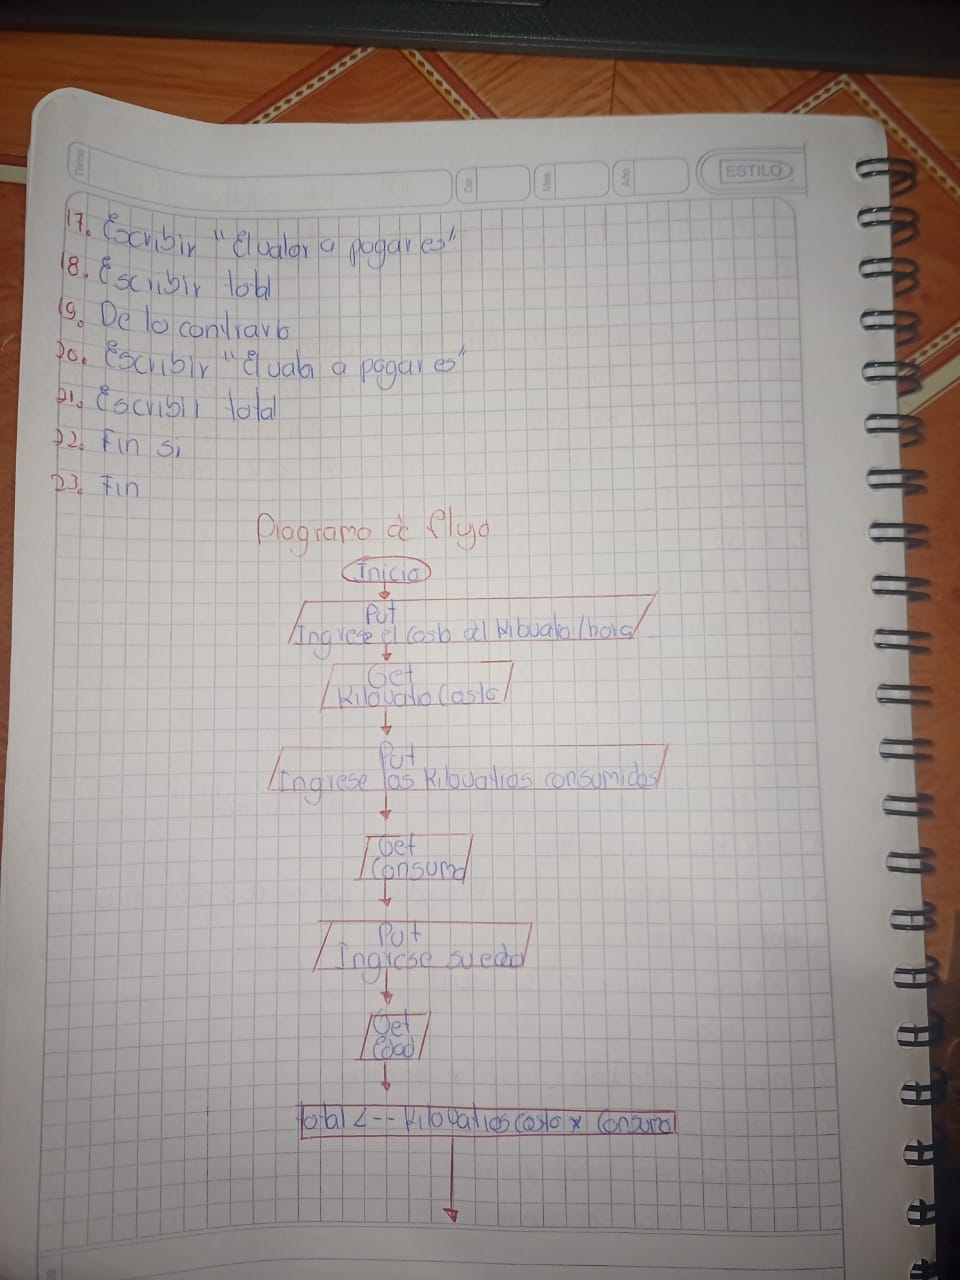 Tema
Día
Mes
Año
ESTILO
17. Escribir "El valor a pagar es"
18. Escribir total
19. De lo contrario
20. Escribir "El valor a pagar es"
21. Escribir total
22. Fin si
23. Fin
Diagrama de flujo
Inicio
Put
Ingrese el costo del kilovatio/hora
Get
Kilovatio Costo
Put
Ingrese los kilovatios consumidos
Get
Consumo
Put
Ingrese su edad
Get
Edad
total <-- kilovatios costo * Consumo